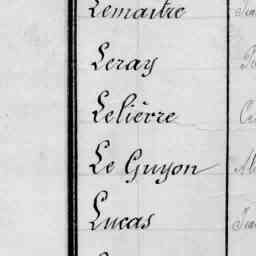 Lemaitre
Leray
Lelièvre
Le Guyon
Lucas